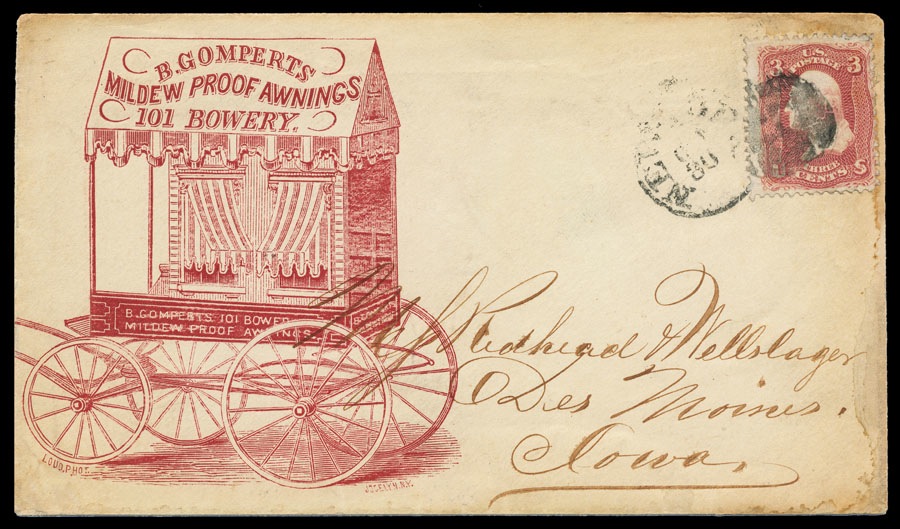 B. GOMPERTS
MILDEW PROOF AWNINGS
101 BOWERY.
B. GOMPERTS 101 BOWERY
MILDEW PROOF AWNINGS
LOUD, PHOT.
JOSELYN. N.Y.
U.S.
POSTAGE
3 3
THREE
CENTS
NEW
30
Redhead & Wellslager
Des Moines.
Iowa.